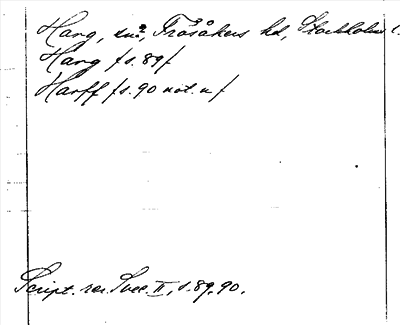 Harg, sn?, Frösåkers hd, Stockholms l.
Harg /s. 89/
Harff /s. 90 not. u/
Script. rer. Svec. II, s. 89, 90.